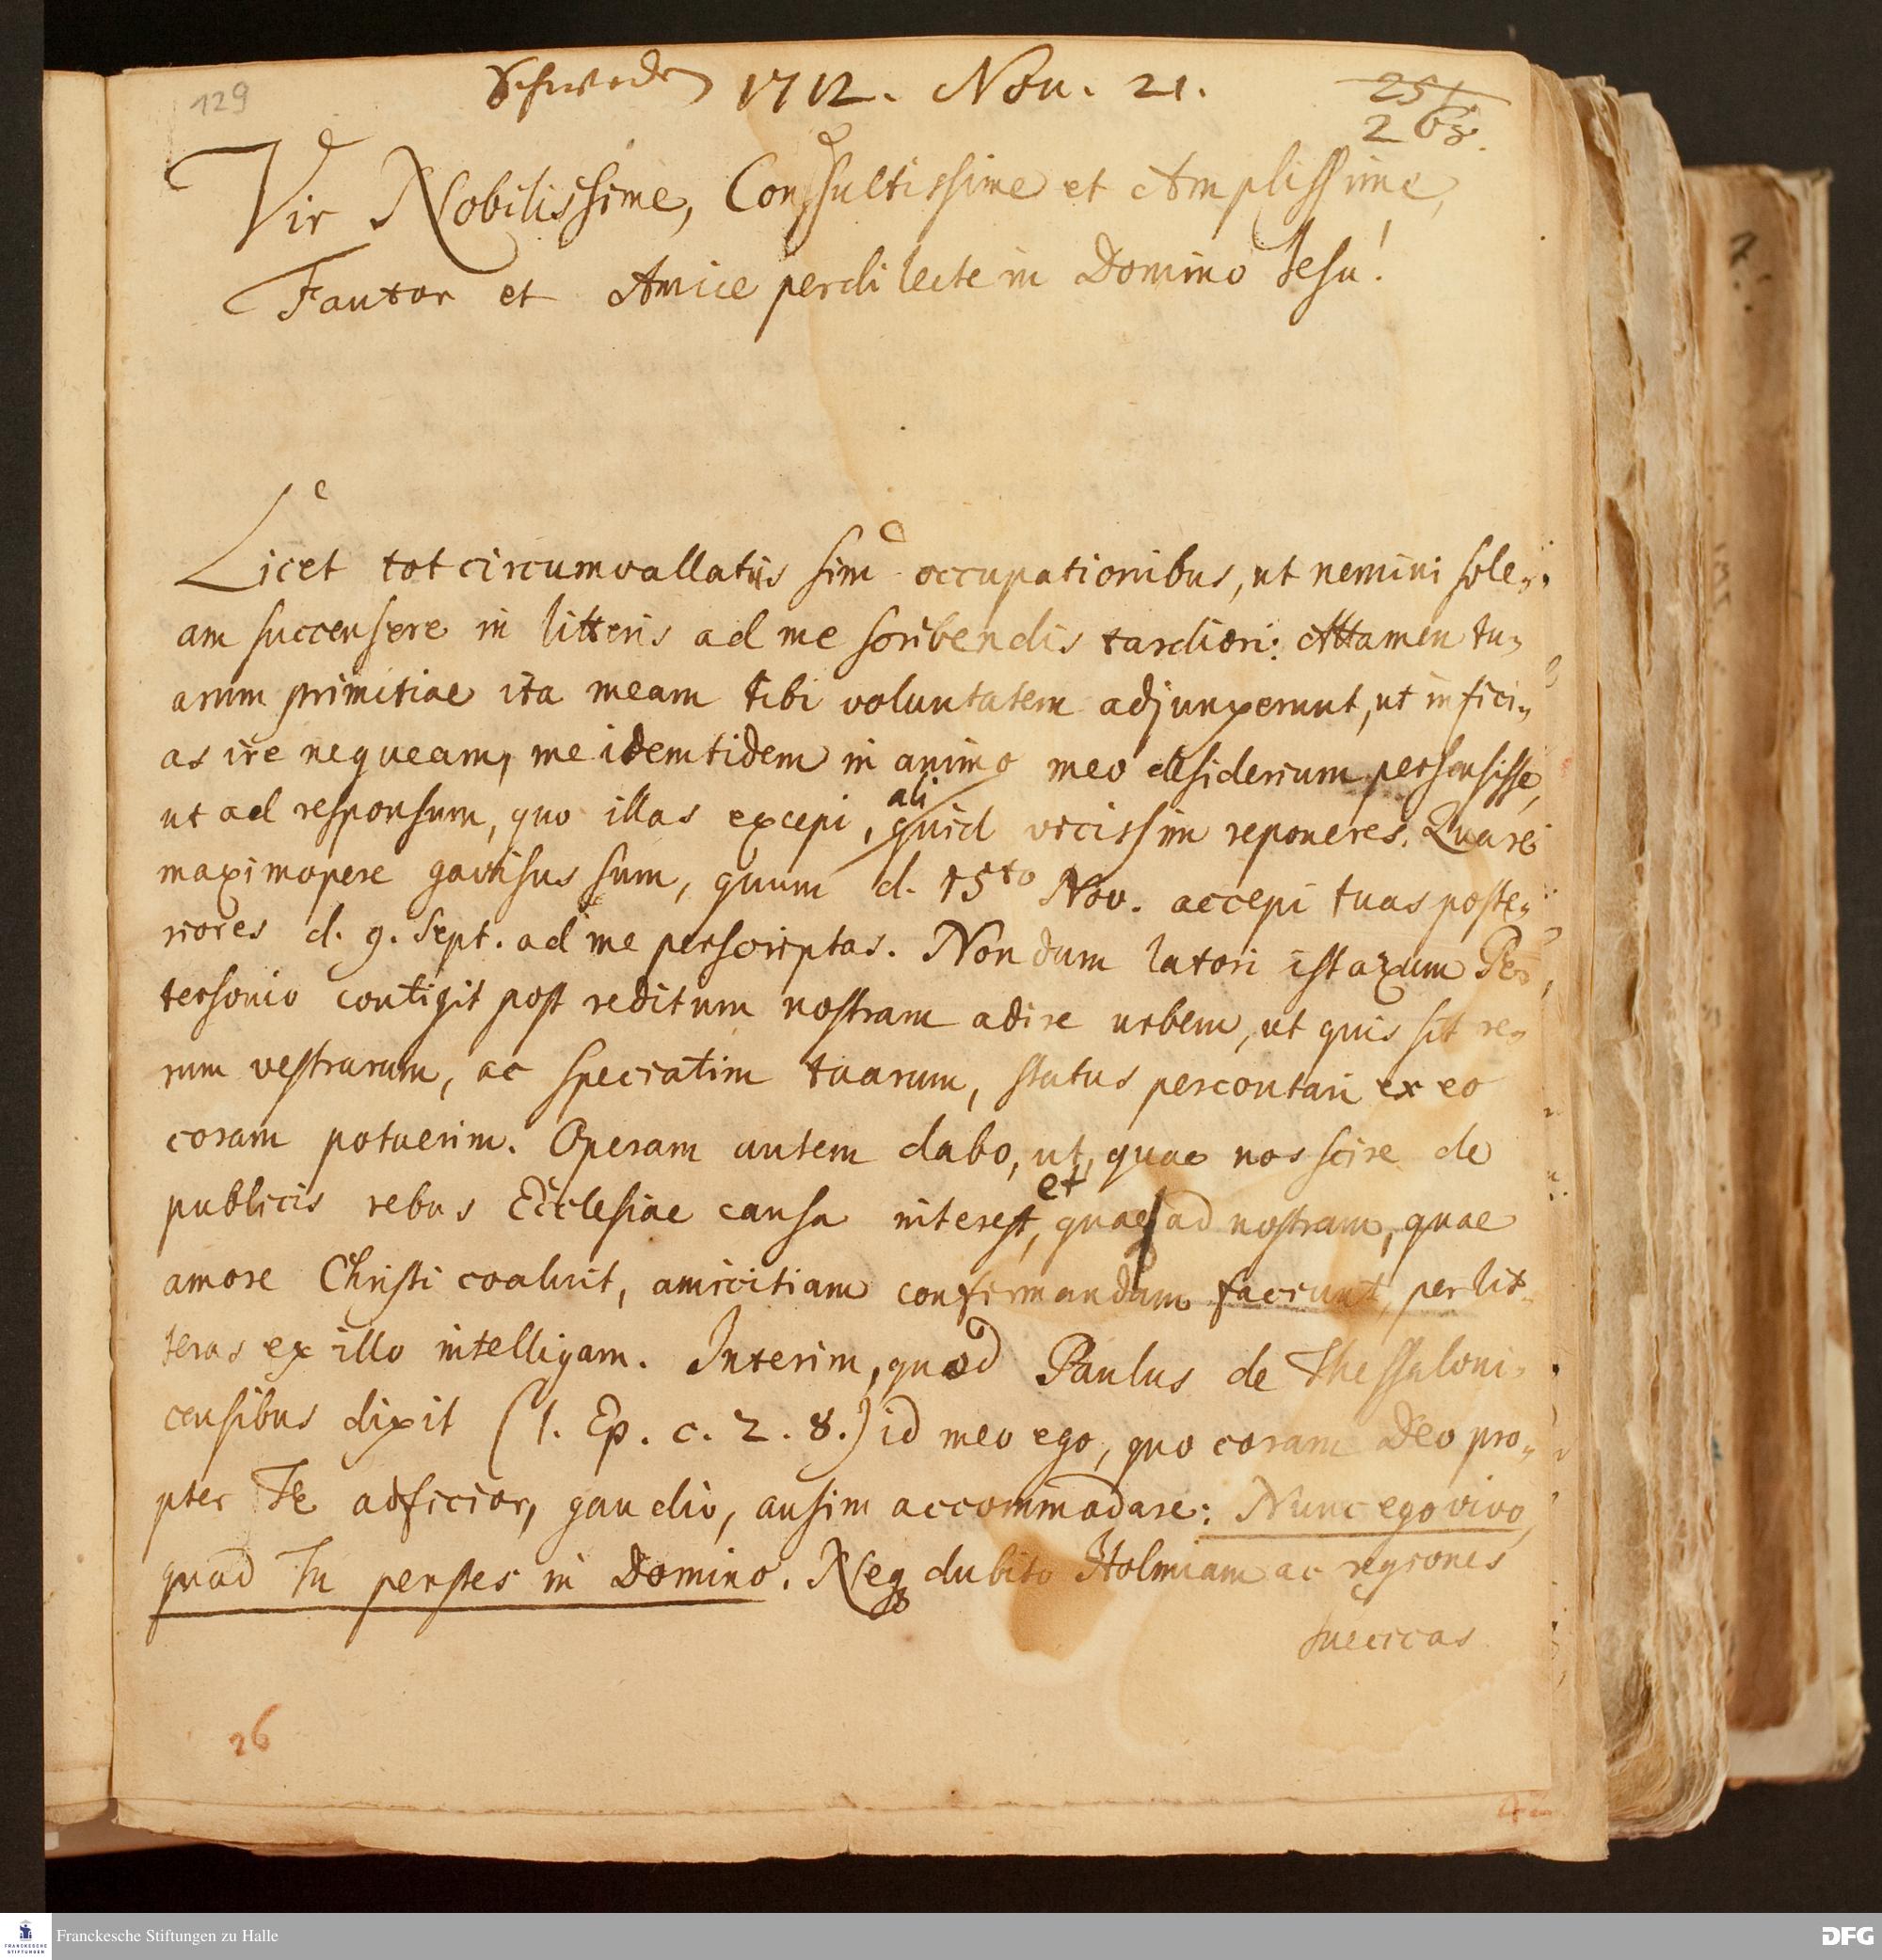 129
Schweden 1712. Nov. 21.
251
268.
Vir Nobilissime, Consultissime et Amplissime,
Fautor et Amice perdilecte in Domino Jesu!
Licet tot circumvallatus sim occupationibus, ut nemini sole-
am succensere in litteris ad me scribendis tardiori: Attamen tu-
arum primitiae ita meam tibi voluntatem adjunxerunt, ut infici-
as ire nequeam, me identidem in animo meo desiderium persensisse,
ut ad responsum, quo illas excepi, aliquid vicissim reponeres. Quare
maximopere gavisus sum, quum d. 15to Nov. accepi tuas poste-
riores d. 9. Sept. ad me perscriptas. Nondum latori istarum Pe-
tersonio contigit post reditum nostram adire urbem, ut quis sit re-
rum vestrarum, ac speciatim tuarum, status percontari ex eo
coram potuerim. Operam autem dabo, ut, quae nos scire de
publicis rebus Ecclesiae causa interest, et quae ad nostram, quae
amore Christi coaluit, amicitiam confirmandam faciunt, per lit-
teras ex illo intelligam. Interim, quod Paulus de Thessaloni-
censibus dixit (1. Ep. c. 2. 8.) id meo ego, quo coram Deo pro-
pter Te adficior, gaudio, ausim accommodare: Nunc ego vivo,
quod Tu perstes in Domino. Neq dubito Holmiam ac regiones
Suecicas
26
Franckesche Stiftungen zu Halle
FRANCKESCHE STIFTUNGEN
DFG